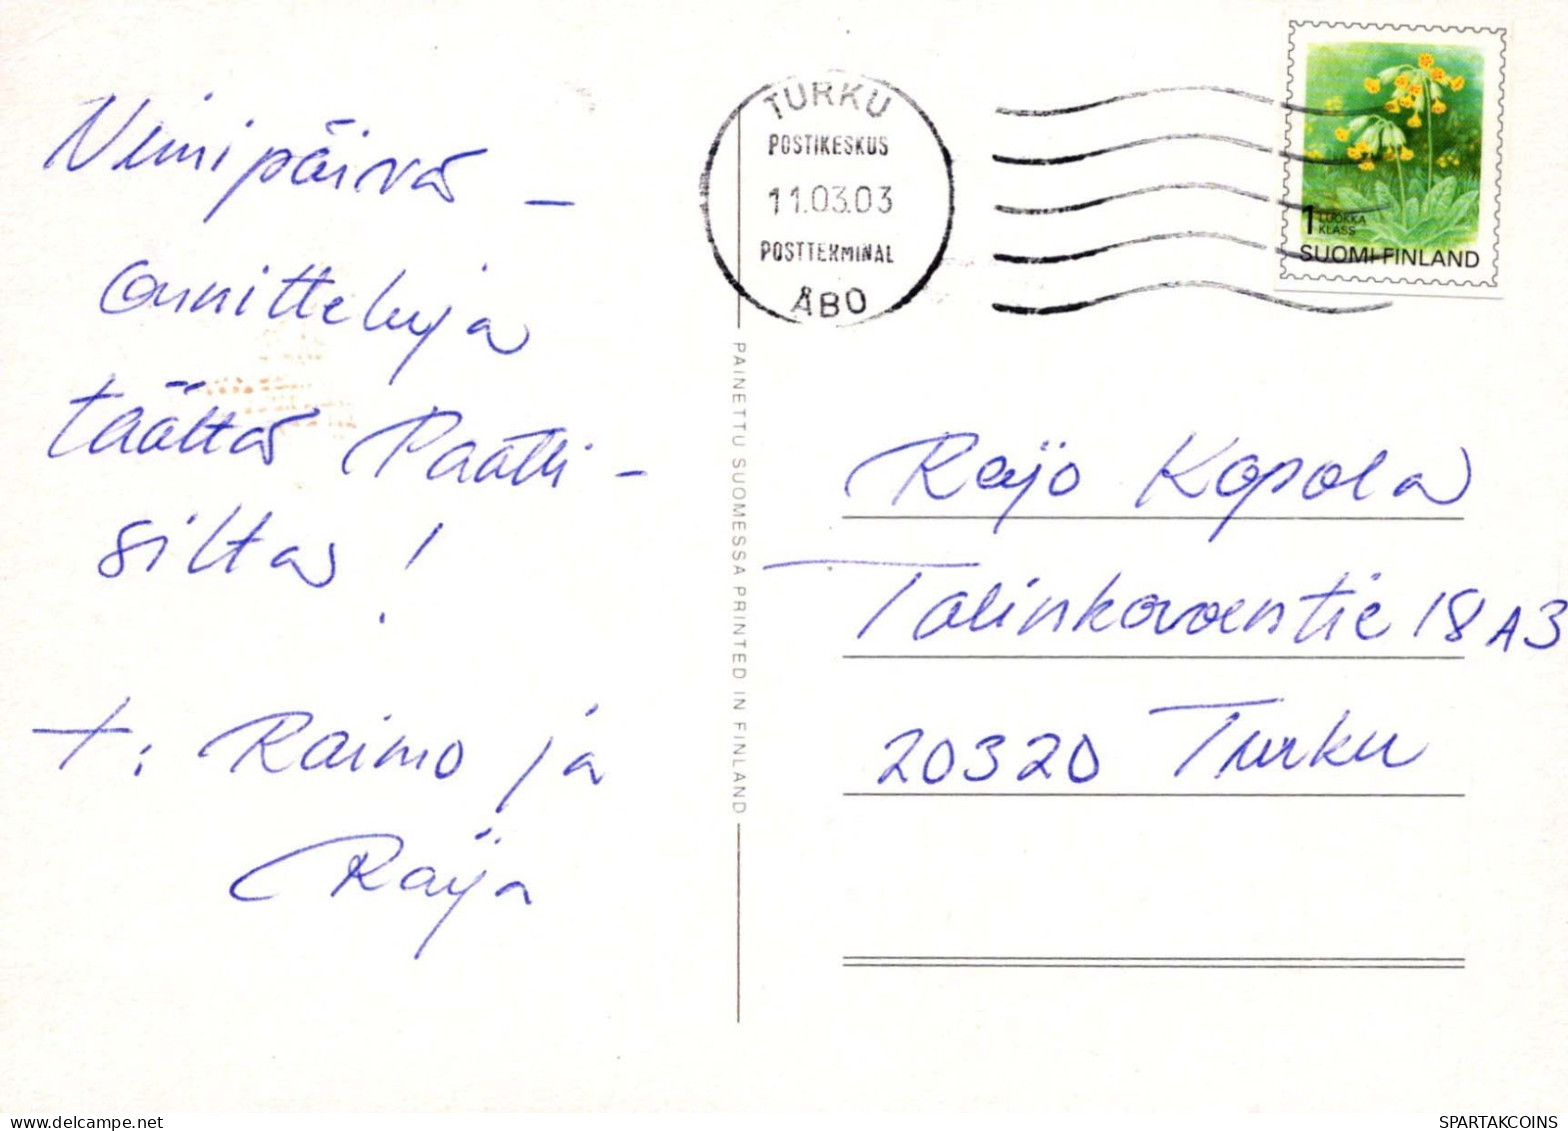 Nimipäivä -
onnitteluja
täältä Paatti -
silta !
t: Raimo ja
Raija
TURKU
POSTIKESKUS
11.03.03
POSTTERMINAL
ÅBO
1 LUOKKA
KLASS
SUOMI-FINLAND
PAINETTU SUOMESSA PRINTED IN FINLAND
Reijo Kopola
Talinkorventie 18 A3
20320 Turku
SPARTAKCOINS
www.delcampe.net